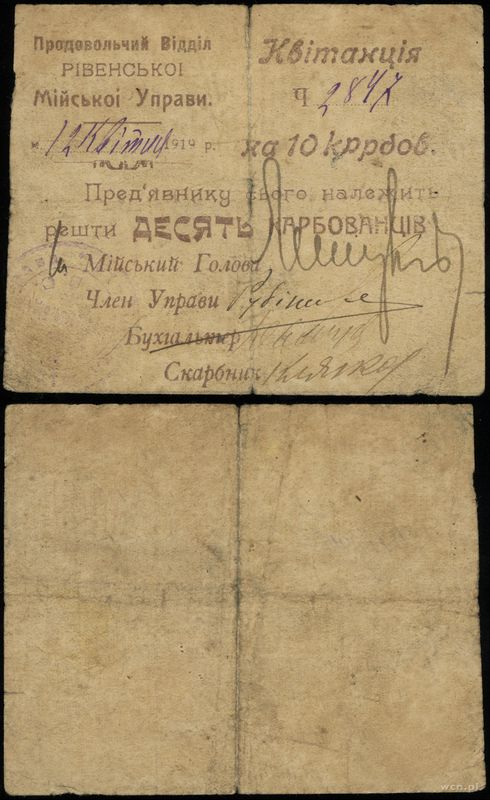 Продовольчий Відділ
РІВЕНСЬКОІ
Мійськоі Управи.
12 Квітня 1919 р.
Квітанція
Ч 2847
на 10 кррбов.
Пред'явнику сього належить
решти ДЕСЯТЬ КАРБОВАНЦІВ
Мійський Голова
Член Управи
Бухгальтер
Скарбник
wcn.pl